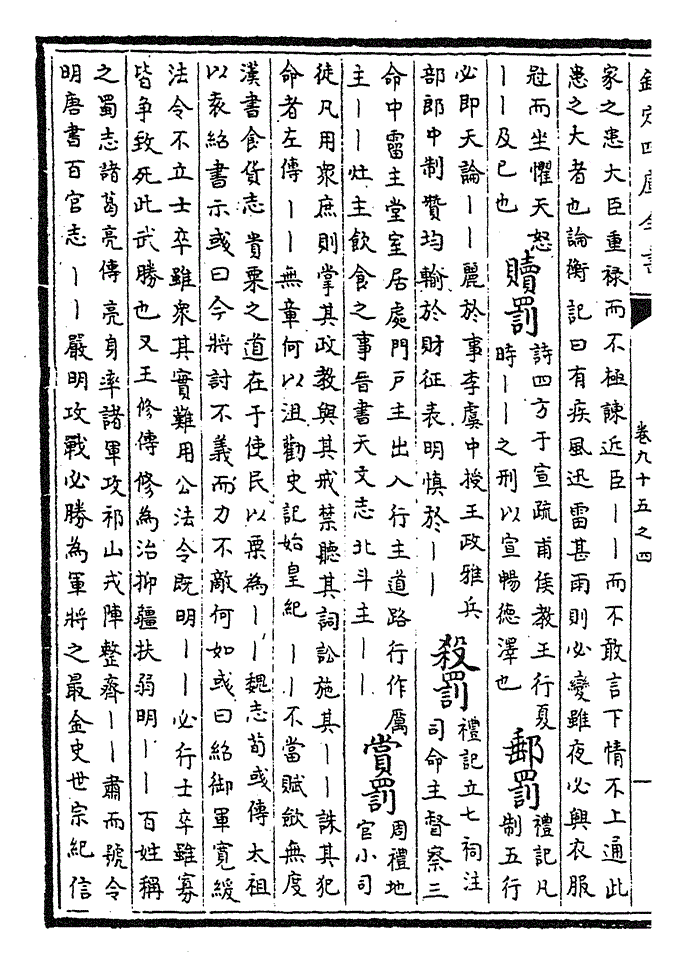 欽定四庫全書 卷九十五之四 一
家之患大臣重禄而不極諫近臣丨丨而不敢言下情不上通此
患之大者也論衡記曰有疾風迅雷甚雨則必變雖夜必興衣服
冠而坐懼天怒
丨丨及已也
贖罰
詩四方于宣疏甫侯教王行夏
時丨丨之刑以宣暢德澤也
郵罰
禮記凡
制五行
必即天論丨丨麗於事李虞中授王政雅兵
部郎中制贊均輸於財征表明慎於丨丨
殺罰
禮記立七祠注
司命主督察三
命中霤主堂室居處門戶主出入行主道路行作厲
主丨丨灶主飲食之事晉書天文志北斗主丨丨
賞罰
周禮地
官小司
徒凡用衆庶則掌其政教與其戒禁聽其詞訟施其丨丨誅其犯
命者左傳丨丨無章何以沮勸史記始皇紀丨丨不當賦斂無度
漢書食貨志貴粟之道在于使民以粟為丨丨魏志荀彧傳太祖
以袁紹書示彧曰今將討不義而力不敵何如彧曰紹御軍寛緩
法令不立士卒雖衆其實難用公法令既明丨丨必行士卒雖寡
皆争致死此武勝也又王修傳修為治抑彊扶弱明丨丨百姓稱
之蜀志諸葛亮傳亮身率諸軍攻祁山戎陣整齊丨丨肅而號令
明唐書百官志丨丨嚴明攻戰必勝為軍將之最金史世宗紀信